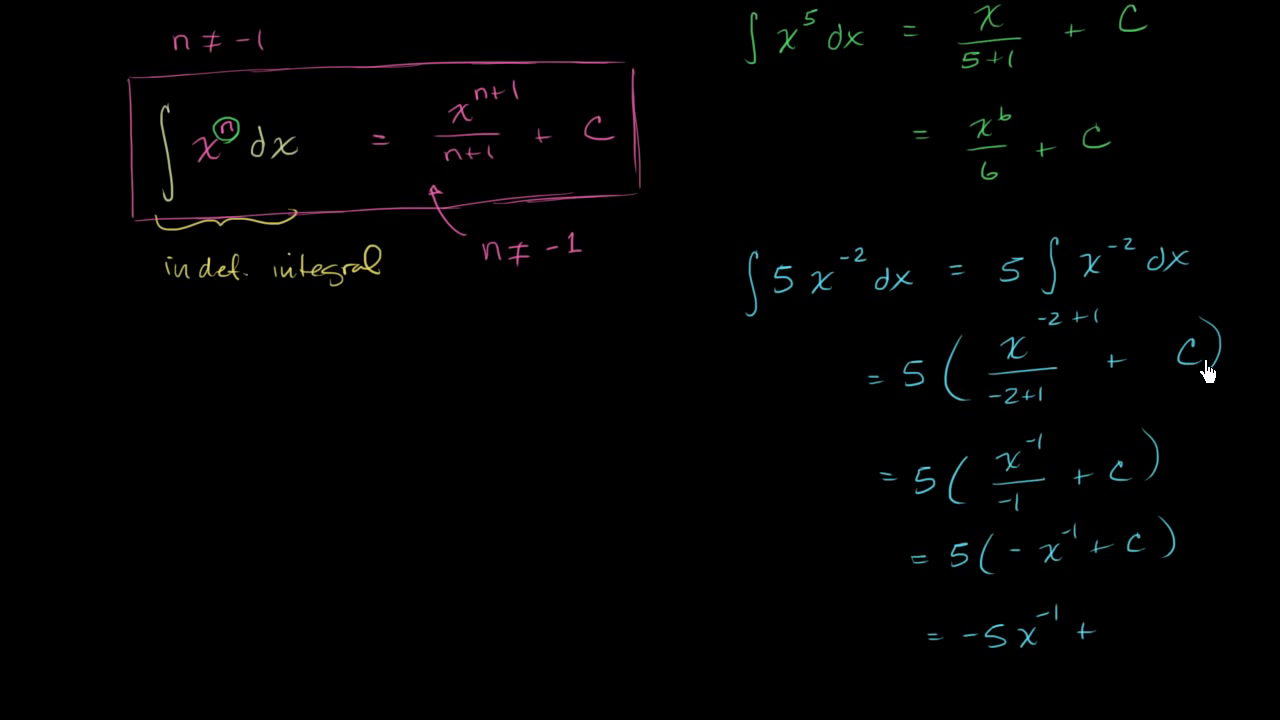 n ≠ -1
∫ xⁿ dx = xⁿ⁺¹/n+1 + C
n ≠ -1
indef. integral
∫ x⁵ dx = x/5+1 + C
= x⁶/6 + C
∫ 5 x⁻² dx = 5 ∫ x⁻² dx
= 5 ( x⁻²⁺¹/-2+1 + C )
= 5 ( x⁻¹/-1 + C )
= 5 ( - x⁻¹ + C )
= -5x⁻¹ +